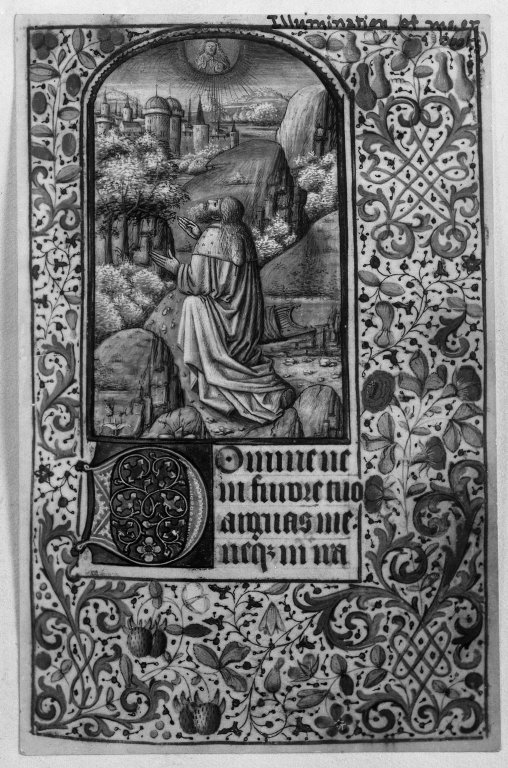 Illumination of
Domine ne
in furore tuo
arguas me
neqꝫ in ira